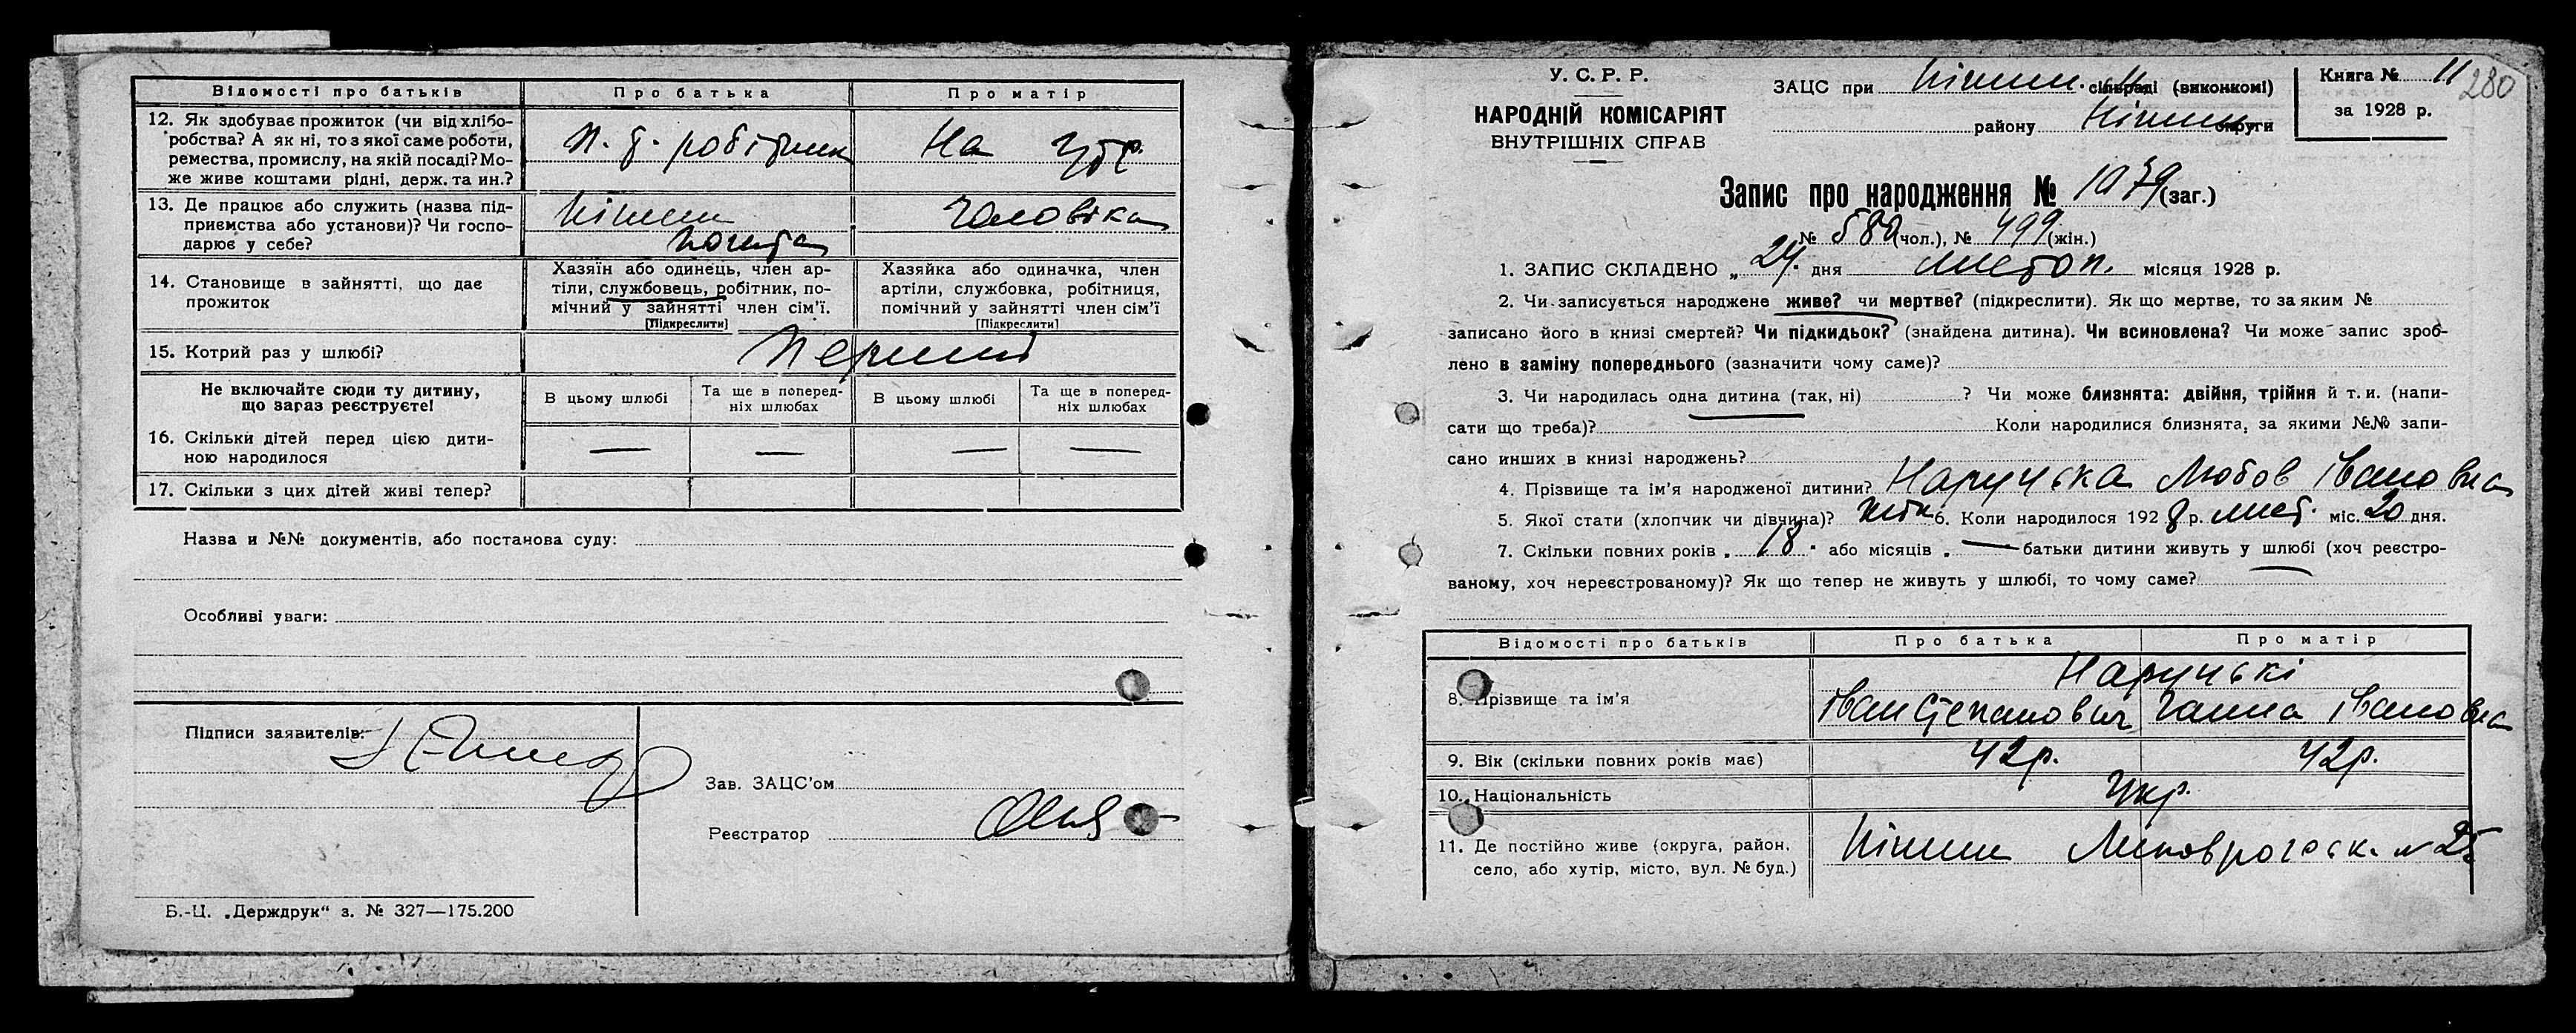 Відомості про батьків Про батька Про матір
12. Як здобуває прожиток (чи від хлібо-
робства? А як ні, то з якої саме роботи,
ремества, промислу, на якій посаді? Мо-
же живе коштами рідні, держ. та ин.?
п. т. робітник На утр.
13. Де працює або служить (назва під-
приємства або установи)? Чи госпо-
дарює у себе?
Ніжин чоловіка
почта
14. Становище в зайнятті, що дає
прожиток
Хазяїн або одинець, член ар-
тіли, службовець, робітник, по-
мічний у зайнятті член сім'ї.
[Підкреслити]
Хазяйка або одиначка, член
артіли, службовка, робітниця,
помічний у зайнятті член сім'ї
[Підкреслити]
15. Котрий раз у шлюбі? Перший
Не включайте сюди ту дитину,
що зараз реєструєте!
В цьому шлюбі
Та ще в поперед-
ніх шлюбах
В цьому шлюбі
Та ще в поперед-
ніх шлюбах
16. Скільки дітей перед цією дити-
ною народилося — — — —
17. Скільки з цих дітей живі тепер?
Назва и №№ документів, або постанова суду:
Особливі уваги:
Підписи заявителів:
Зав. ЗАЦС'ом
Реєстратор
Б.-Ц. „Держдрук" з. № 327—175.200
У. С. Р. Р.
НАРОДНІЙ КОМІСАРІЯТ
ВНУТРІШНІХ СПРАВ
ЗАЦС при Ніжин. сільраді (виконкомі)
району Ніжин. округи
Книга № 11
за 1928 р.
280
Запис про народження № 1079 (заг.)
№ 580 (чол.), № 499 (жін.)
1. ЗАПИС СКЛАДЕНО „ 24. дня листоп. місяця 1928 р.
2. Чи записується народжене живе? чи мертве? (підкреслити). Як що мертве, то за яким №
записано його в книзі смертей? Чи підкидьок? (знайдена дитина). Чи всиновлена? Чи може запис зроб-
лено в заміну попереднього (зазначити чому саме)?
3. Чи народилась одна дитина (так, ні) ? Чи може близнята: двійня, трійня й т. и. (напи-
сати що треба)? Коли народилися близнята, за якими №№ запи-
сано инших в книзі народжень?
4. Прізвище та ім'я народженої дитини? Наручська Любов Івановна
5. Якої стати (хлопчик чи дівчина)? жін 6. Коли народилося 1928 р. лист. міс. 20 дня.
7. Скільки повних років „ 18 " або місяців „ — батьки дитини живуть у шлюбі (хоч реєстро-
ваному, хоч нереєстрованому)? Як що тепер не живуть у шлюбі, то чому саме?
Відомості про батьків Про батька Про матір
8. Прізвище та ім'я
Наручські
Іван Степанович Ганна Івановна
9. Вік (скільки повних років має) 42 р. 42 р.
10. Національність Укр.
11. Де постійно живе (округа, район,
село, або хутір, місто, вул. № буд.)
Ніжин № 25